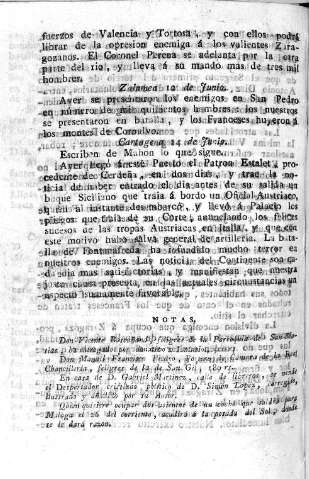 fuerzos de Valencia y Tortosa, y con ellos podrá
librar de la opresion enemiga á los valientes Zara-
gozanos. El Coronel Perena se adelanta por la otra
parte del rio, y lleva á su mando mas de tres mil
hombres.
Zalamea 10 de Junio.
Ayer se presentaron los enemigos en San Pedro
en número de mil quinientos hombres: los nuestros
se presentaron en batalla, y los Franceses huyeron á
los montes de
Cartagena 14 de Junio.
Escriben de Mahon lo que sigue.
Ayer llegó á este Puerto el Patron Estalet, pro-
cedente de Cerdeña, en dos dias, y trae la no-
ticia de haber entrado el dia antes de su salida un
buque Siciliano que traía á bordo un Oficial Austriaco,
quien al instante desembarcó, y llevó á Palacio los
pliegos que traía de su Corte, anunciando los felices
sucesos de las tropas Austriacas en Italia, y que con
este motivo hubo salva general de artilleria. La bata-
lla de ha infundido mucho terror en
nuestros enemigos. Las noticias del Continente son ca-
da dia mas satisfactorias, y manifiestan que nuestra
causa presenta, en las actuales circunstancias un
aspecto sumamente favorable.
NOTAS.
Don Vicente feligres de la Parroquia de San Ma-
tias
Don Manuel Francisco de la Real
Chancilleria, feligres de la de San Gil,
En casa de D. Gabriel Martinez, calle de
el Despertador cristiano de D. Simon Lopez, corregido,
ilustrado y añadido por su Autor.
Quien quisiere ocupar dos asientos de un coche que saldrá para
Malaga el 26 del corriente, acudirá á la posada del Sol, donde
se le dará razon.